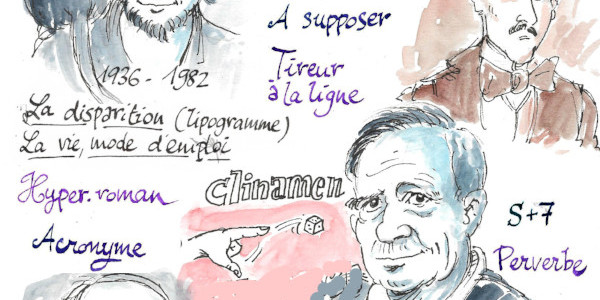 1936 - 1982
La disparition (lipogramme)
La vie, mode d'emploi
Hyper-roman
Acronyme
A supposer
Tireur
à la ligne
Clinamen
S+7
Perverbe